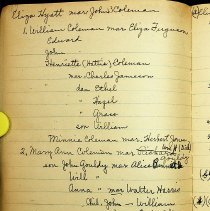 Eliza Hyatt mar John Coleman
1. William Coleman mar Eliza Ferguson
Edward
John
Henrietta (Hattie) Coleman
mar Charles Jameson
dau Ethel
" Hazel
" Grace
son William
Minnie Coleman mar. Herbert
2. Mary Ann Coleman mar
son John Gouldy mar Alice
Will -
Anna " mar Walter Harris
Chil. John - William